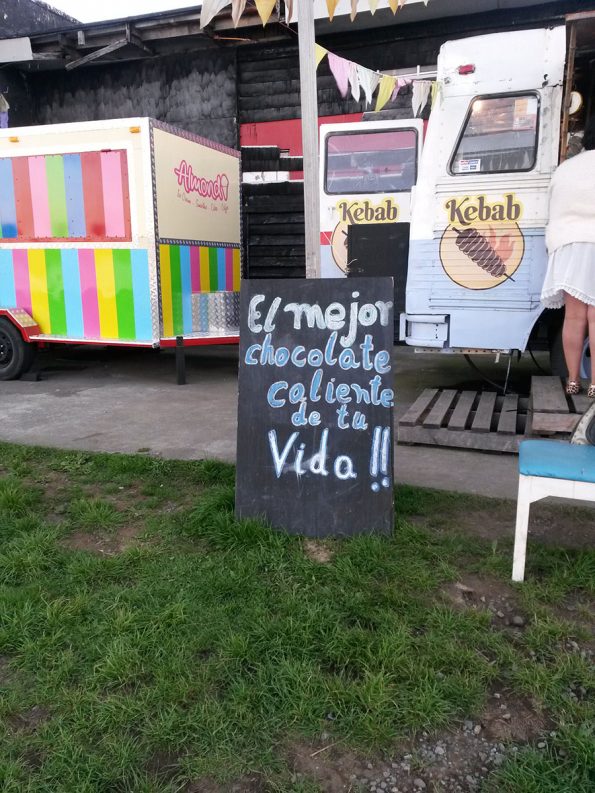 Almond
Kebab
Kebab
El mejor
chocolate
caliente
de tu
Vida !!